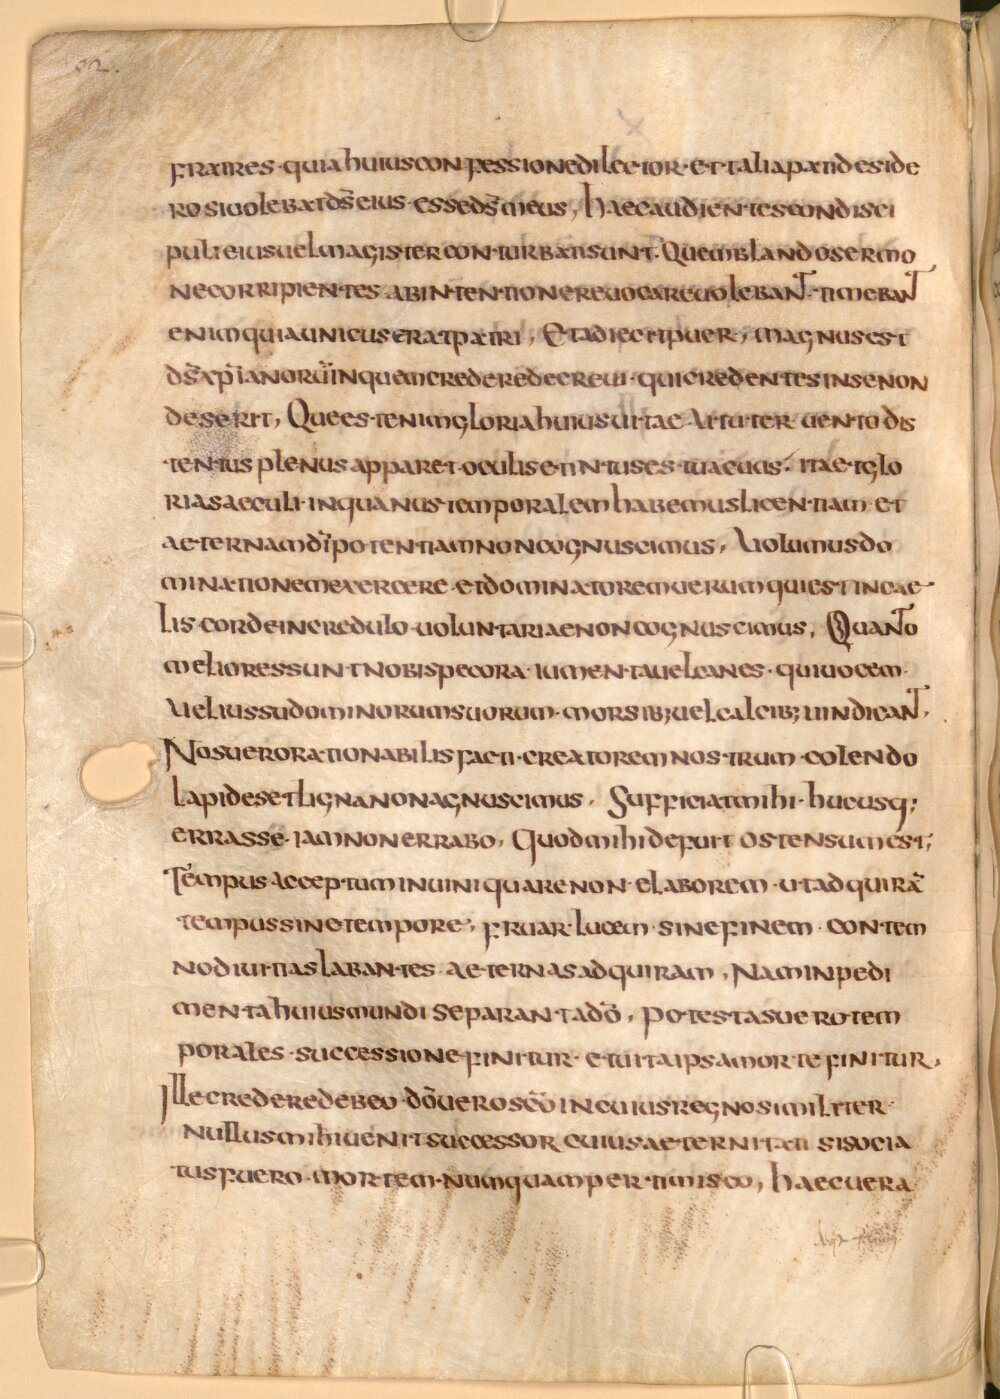 fratres · quia huius confessionẹ dilector · et talia pati deside
ro si uolebat ds̄ eius · esse ds̄ meus, haec audientes condisci
puli eius uel magister conturbati sunt. Quem blando sermo
ne corripientes ab intentione reuocare uolebant · timebant
enim quia unicus erat patri, Et adiecit puer, magnus est
ds̄ xp̄ianorū in quem credere decreui · qui credentes in se non
deserit, Que est enim gloria huius uitae · Ut uter uento dis
tentus plenus apparet oculis et intus est uacuus · ita et glo
ria saeculi · in qua nus temporalem habemus licentiam et
aeternam di potentiam non cognuscimus, Uolumus do
minationem exercere · et dominatorem uerum qui est in cae
lis · corde incredulo · uoluntariae non cognuscimus, Quanto
meliores sunt nobis pecora · iumenta uel canes · qui uocem
uel iussu dominorum suorum · morsib; uel calcib; uindicant,
Nos uero rationabilis facti · creatorem nostrum · colendo
lapides et ligna non agnuscimus, Sufficiat mihi · hucusq;
errasse · iam non errabo, Quod mihi defuit ostensum est;
Tempus acceptum inuini quare non elaborem · ut adquirā
tempus sine tempore; fruar · lucem · sine finem · contem
no diuitias labantes · aeternas adquiram, Nam inpedi
menta huius mundi separant a dō, Potestas uero tem
porales · successione finitur · et uita ipsa morte finitur,
Ille credere debeo · dō uero scō in cuius regno similiter
nullus mihi uenit successor cuius aeternitati si socia
tus fuero · mortem · numquam pertimisco, haec uera